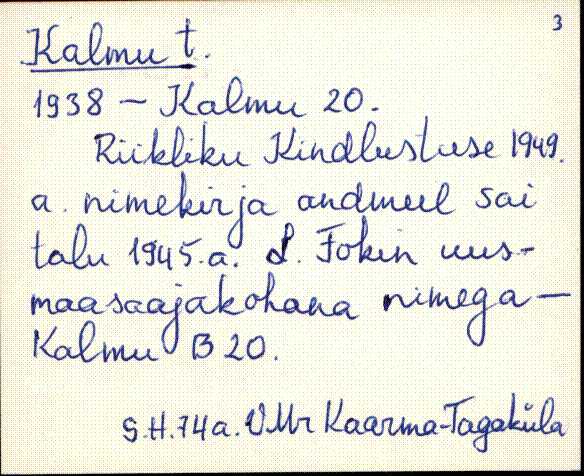 3
Kalmu t.
1938 – Kalmu 20.
Riikliku Kindlustuse 1949.
a. nimekirja andmeil sai
talu 1945.a. L. Fokin uus-
maasaajakohana nimega –
Kalmu B 20.
S.H. 74a. VMr Kaarma-Tagaküla